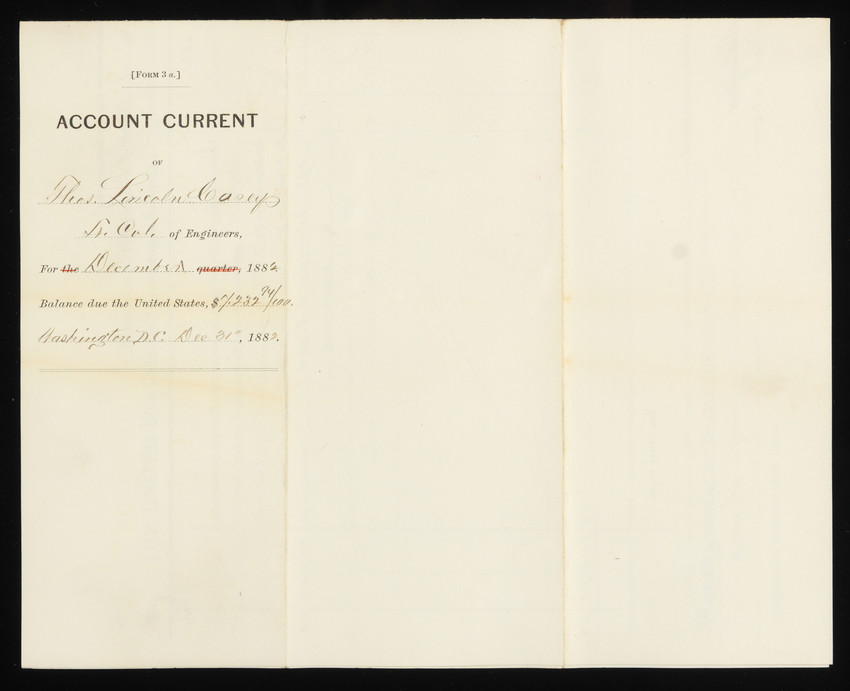 [FORM 3 a.]
ACCOUNT CURRENT
OF
Thos. Lincoln Casey
Lt. Col. of Engineers,
For the December quarter, 1882.
Balance due the United States, $7,232 94/100.
Washington D.C. Dec 31st, 1882.